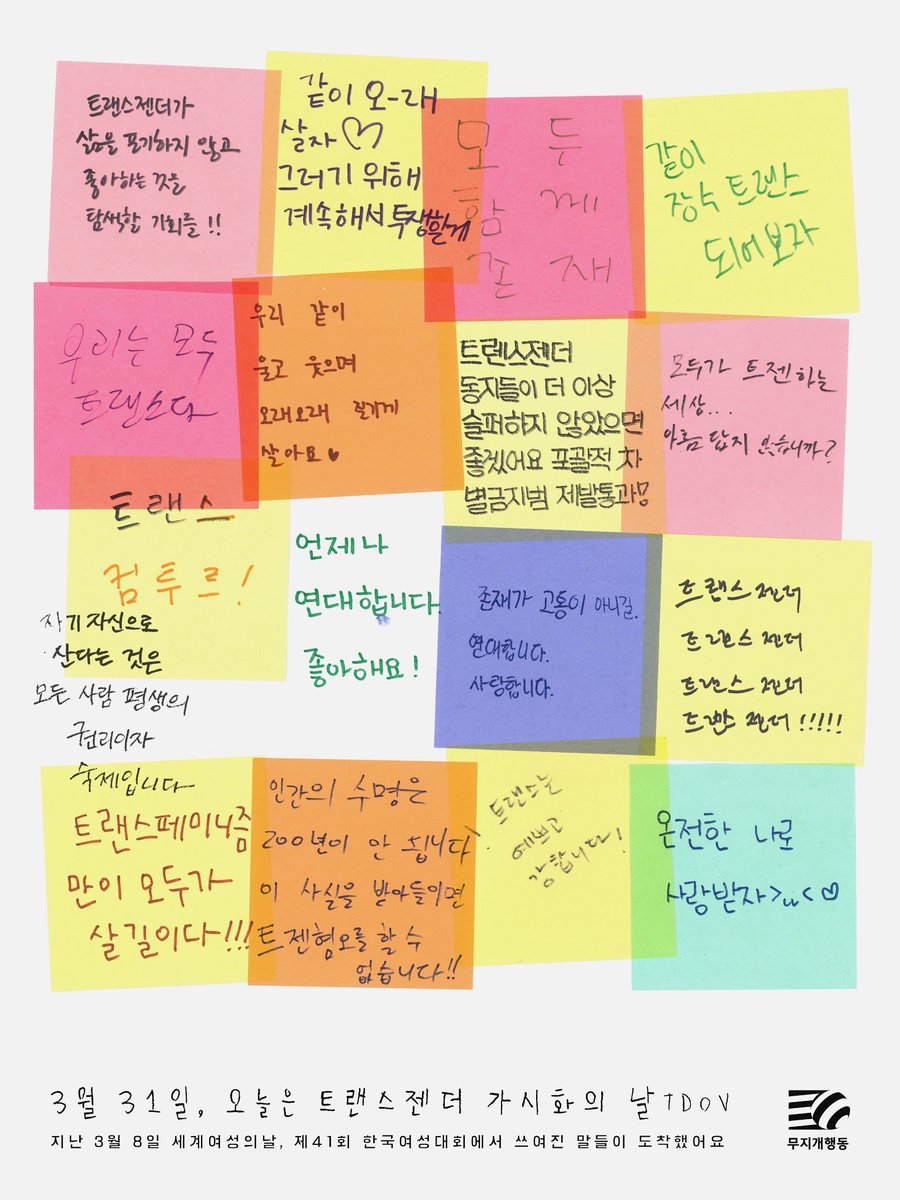 트랜스젠더가
삶을 포기하지 않고
좋아하는 것을
탐색할 기회를 !!
같이 오-래
살자♡
그러기 위해
계속해서 투쟁할게
모두
함께
존재
같이
장수 트랜스
되어보자
우리는 모두
트랜스다
우리 같이
울고 웃으며
오래오래 즐겁게
살아요♥
트랜스젠더
동지들이 더 이상
슬퍼하지 않았으면
좋겠어요 포괄적 차
별금지법 제발통과!
모두가 트젠하는
세상...
아름답지 않습니까?
트랜스
컴투르!
자기 자신으로
산다는 것은
모든 사람 평생의
권리이자
숙제입니다
언제나
연대합니다.
좋아해요!
존재가 고통이 아니길.
연대합니다.
사랑합니다.
트랜스 젠더
트랜스 젠더
트랜스 젠더
트랜스 젠더 !!!!!
트랜스페미니즘
만이 모두가
살길이다!!!
인간의 수명은
200년이 안 됩니다
이 사실을 받아들이면
트젠혐오를 할 수
없습니다!!
트랜스는
예쁘고
강합니다!
온전한 나로
사랑받자>ㅆ<♡
3월 31일, 오늘은 트랜스젠더 가시화의 날 TDOV
지난 3월 8일 세계여성의날, 제41회 한국여성대회에서 쓰여진 말들이 도착했어요
무지개행동